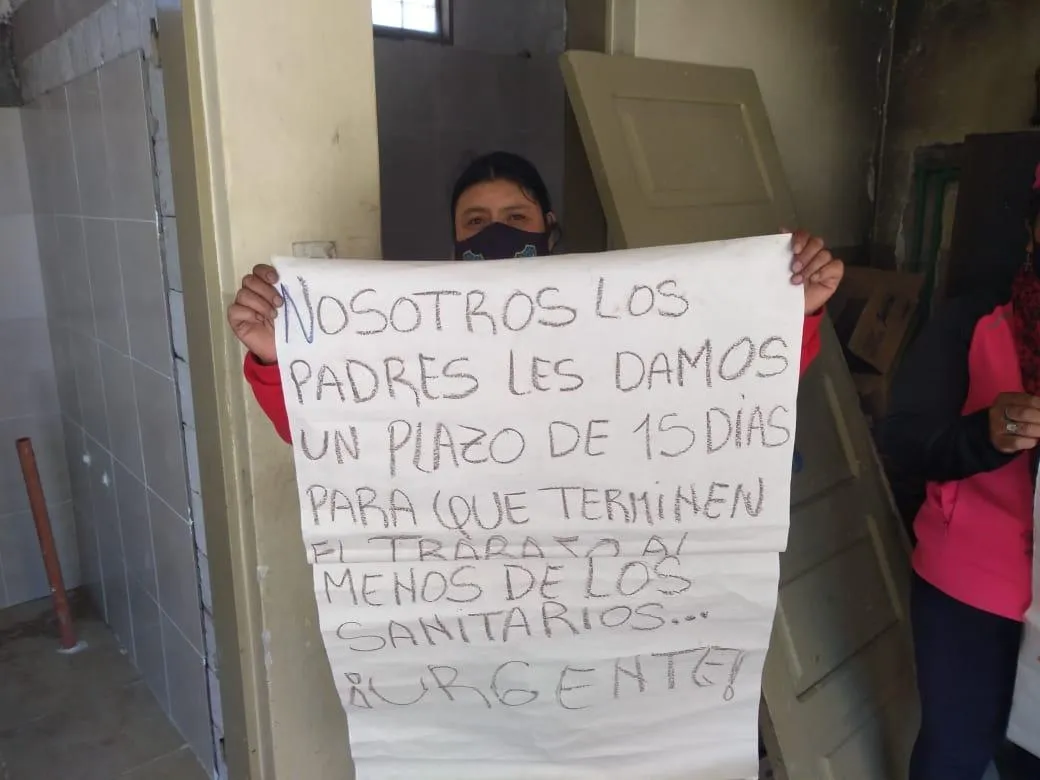 NOSOTROS LOS
PADRES LES DAMOS
UN PLAZO DE 15 DÍAS
PARA QUE TERMINEN
EL TRABAJO AL
MENOS DE LOS
SANITARIOS...
¡URGENTE!